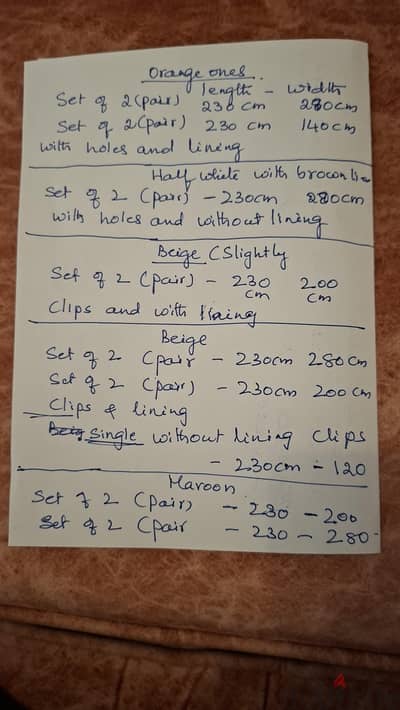 Orange ones.
length - width
Set of 2 (pair) 230 cm 280cm
Set of 2 (pair) 230 cm 140cm
with holes and lining
Half white with brown
Set of 2 (pair) - 230cm 280cm
with holes and without lining
Beige (Slightly
Set of 2 (pair) - 230 200
cm cm
Clips and with lining
Beige
Set of 2 (pair - 230cm 280cm
Set of 2 (pair) - 230cm 200cm
Clips & lining
Single without lining Clips
- 230cm - 120
Maroon
Set of 2 (pair) - 230 - 200
Set of 2 (pair - 230 - 280